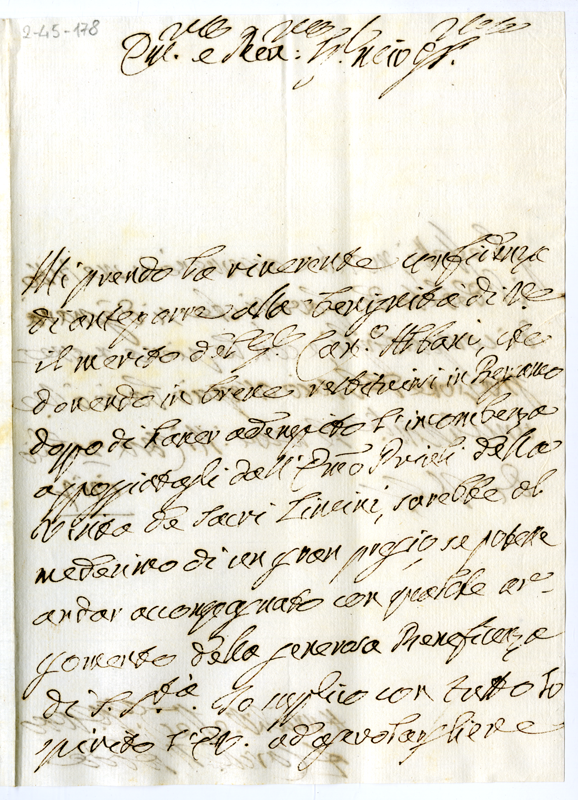 2-45-178
Em.mo e Rev.mo Sig.r mio Oss.mo
Mi prendo la riverente confidenza
di anteporre alla benignità di V.E.
il merito del Sig.r Can.co Albani, che
dovendo in breve restituirsi in Bergamo
doppo di haver adempito l'incombenza
appoggiatagli dall'Em.mo Priuli della
Visita de Sacri Limini, sarebbe al
medesimo di un gran pregio se potesse
andar accompagnato con qualche ar=
gomento della generosa Beneficenza
di S. S.tà. Io supplico con tutto lo
spirito l'E.V. ad agevolargliene